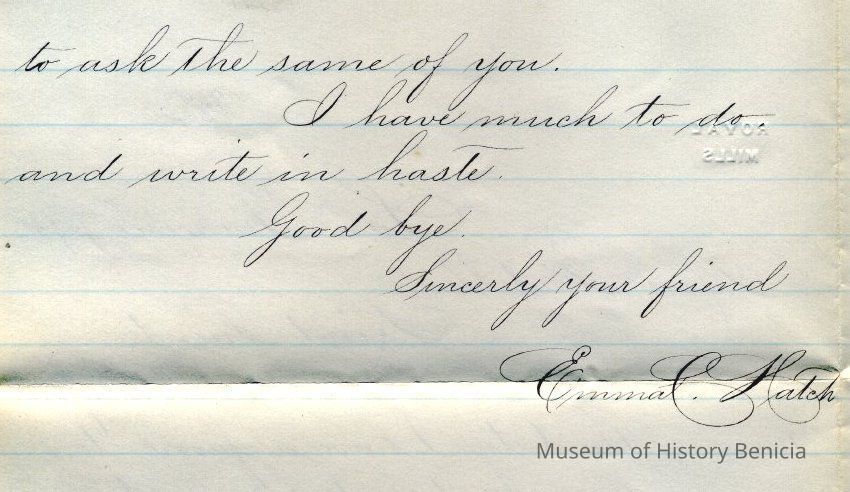 to ask the same of you.
I have much to do.
and write in haste.
Good bye.
Sincerly your friend
Emma C. Hatch
ROYAL
MILLS
Museum of History Benicia